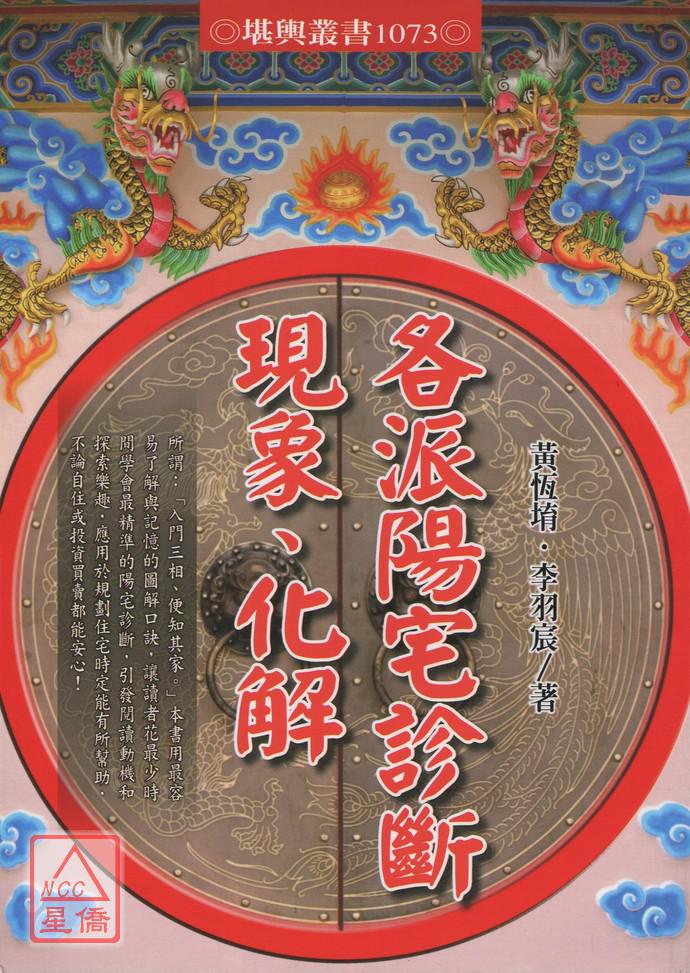 ◎堪輿叢書1073◎
各派陽宅診斷
現象、化解
黃恆堉・李羽宸/著
所謂：「入門三相、便知其家。」本書用最容
易了解與記憶的圖解口訣，讓讀者花最少時
間學會最精準的陽宅診斷，引發閱讀動機和
探索樂趣，應用於規劃住宅時定能有所幫助，
不論自住或投資買賣都能安心！
NCC
星僑